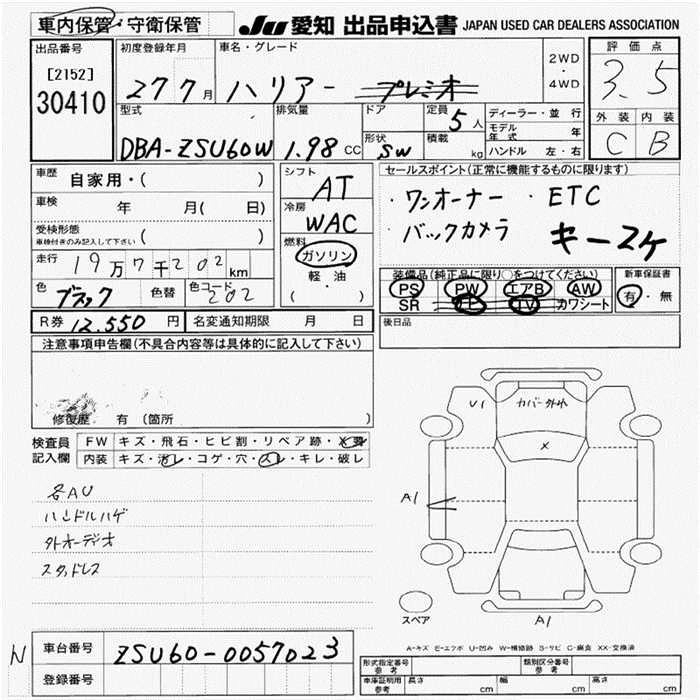 車内保管・守衛保管
JU 愛知 出品申込書 JAPAN USED CAR DEALERS ASSOCIATION
出品番号
[2152]
30410
初度登録年月
27 7月
車名・グレード
ハリアー プレミオ
2WD
・
4WD
評価点
3.5
外装 内装
C B
型式
DBA-ZSU60W
排気量
1.98 CC
ドア
形状
SW
定員
5人
積載
kg
ディーラー・並行
モデル年式 年
ハンドル 左・右
車歴 自家用・( )
車検 年 月( 日)
受検形態
車検付きのみ記入して下さい ( )
走行 19万7千202km
色 ブラック 色替 色コード 202
R券 12,550円 名変通知期限 月 日
シフト
AT
冷房
WAC
燃料
ガソリン
軽・油
( )
セールスポイント(正常に機能するものに限ります)
・ワンオーナー ・ETC
・バックカメラ キーコケ
装備品(純正品に限り○をつけてください)
PS PW エアB AW
SR TV カワシート
新車保証書
有・無
後日品
注意事項申告欄(不具合内容等は具体的に記入して下さい)
修復歴 有(箇所 )
検査員
記入欄
FW キズ・飛石・ヒビ割・リペア跡・X要
内装 キズ・汚レ・コゲ・穴・スレ・キレ・破レ
各AU
ハンドルハゲ
外オーディオ
スタッドレス
U1
カバー外れ
X
A1
A1
スペア
A-キズ E-エクボ U-凹み W-補修跡 S-サビ C-腐食 XX-交換済
N
車台番号 ZSU60-0057023
登録番号
形式指定番号
参考
類別区分番号
参考
車庫証明用
参考
長さ cm
幅 cm
高さ cm